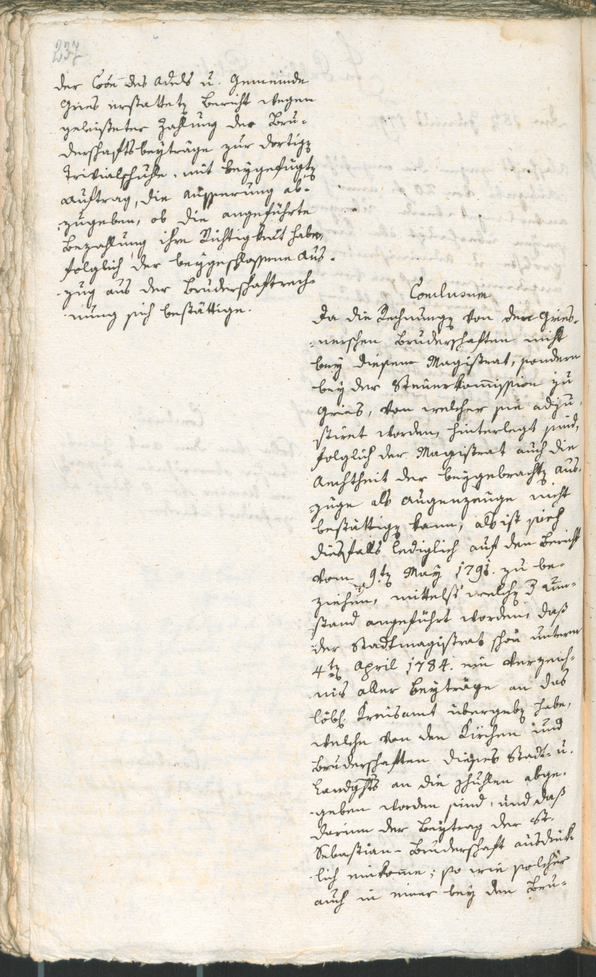 237
der Coõn des Adels u. Gemeinde
Gries erstattet Bericht wegen
geleisteter Zahlung der Bru-
derschaftsbeyträge zur dortig
Trivialschule, mit beygefügt
Auftrag, die Äusserung ab-
zugeben, ob die angeführte
Bezahlung ihre Richtigkeit habe,
folglich der beygeschlossene Aus-
zug aus der Bruderschaftrech-
nung sich bestättige.
Conclusum
Da die Rechnung von der Gries-
nerischen Bruderschaften nicht
bey diesem Magistrat, sondern
bey der Steuerkommission zu
Gries, von welcher sie adju-
stiret worden, hinterlegt sind,
folglich der Magistrat auch die
Aechtheit der beygebracht Aus-
züge als Augenzeuge nicht
bestättig kann; als ist sich
diesfalls lediglich auf den Bericht
vom 9t May 179 . zu be-
ziehen, mittelst welch Um-
stand angeführt worden, daß
der Stadtmagistrat schon unterm
4t April 1784. ein Verzeich-
nis aller Beyträge an das
löbl. Kreisamt übergeb habe,
welche von den Kirchen und
Bruderschaften dieses Stadt- u.
Landghts an die Schulen abge-
geben worden sind, und daß
darinn der Beytrag der St.
Sebastian-Bruderschaft ausdrück-
lich einkome; so wie solcher
auch in einer bey den Bru-